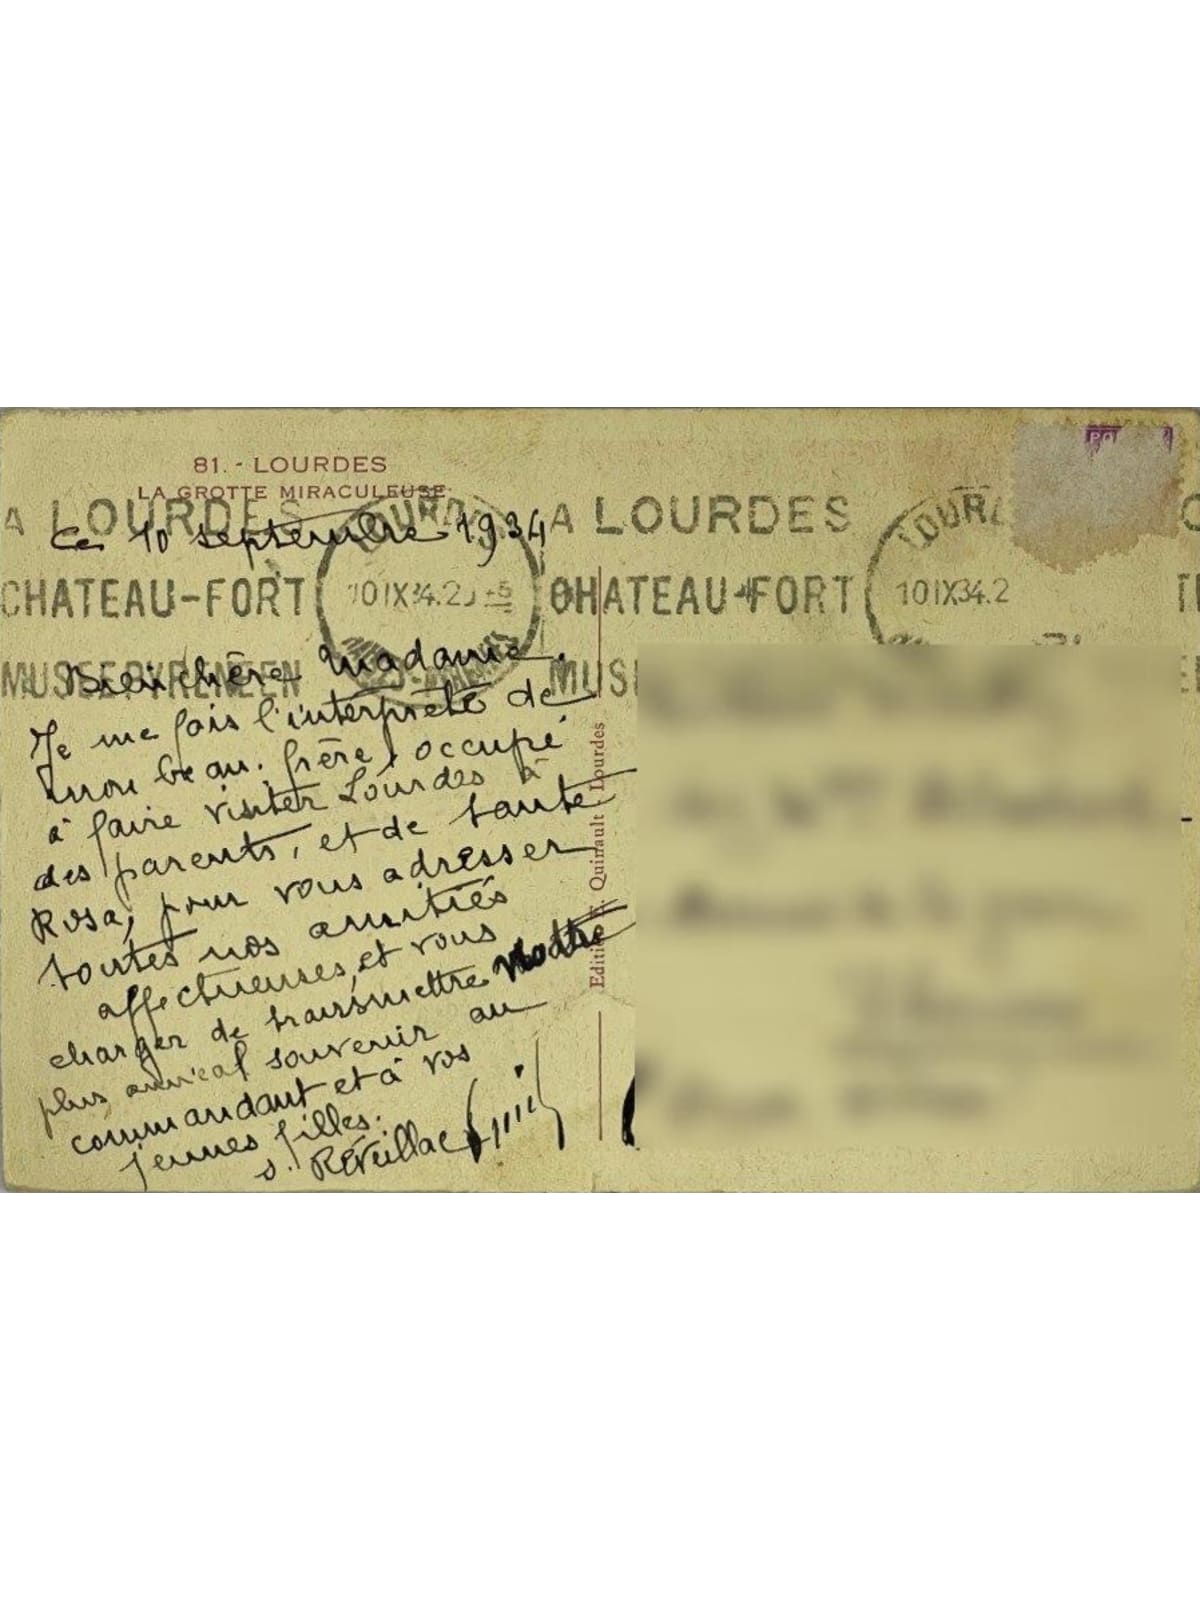 81. - LOURDES
LA GROTTE MIRACULEUSE
A LOURDES
CHATEAU-FORT
MUSEE PYRENEEN
LOURDES
10 IX 34.2
A LOURDES
CHATEAU-FORT
MUS
LOUR
10 IX 34.2
Ce 10 septembre 1934
Bien chère Madame.
Je me fais l'interprète de
mon beau-frère, occupé
à faire visiter Lourdes à
des parents, et de tante
Rosa, pour vous adresser
toutes nos amitiés
affectueuses, et vous
charger de transmettre notre
plus amical souvenir au
commandant et à vos
jeunes filles.
S. Réveillac
Edition F. Quinault Lourdes